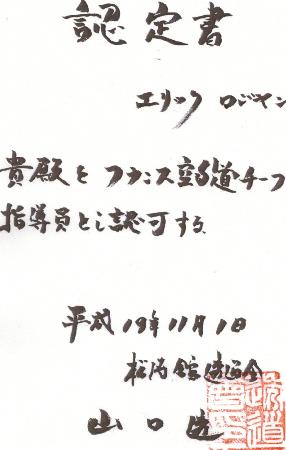 認定書
エリック ロジャン
貴殿を フランス空手道チーフ
指導員とし認可する
平成19年11月1日
館 会
山口